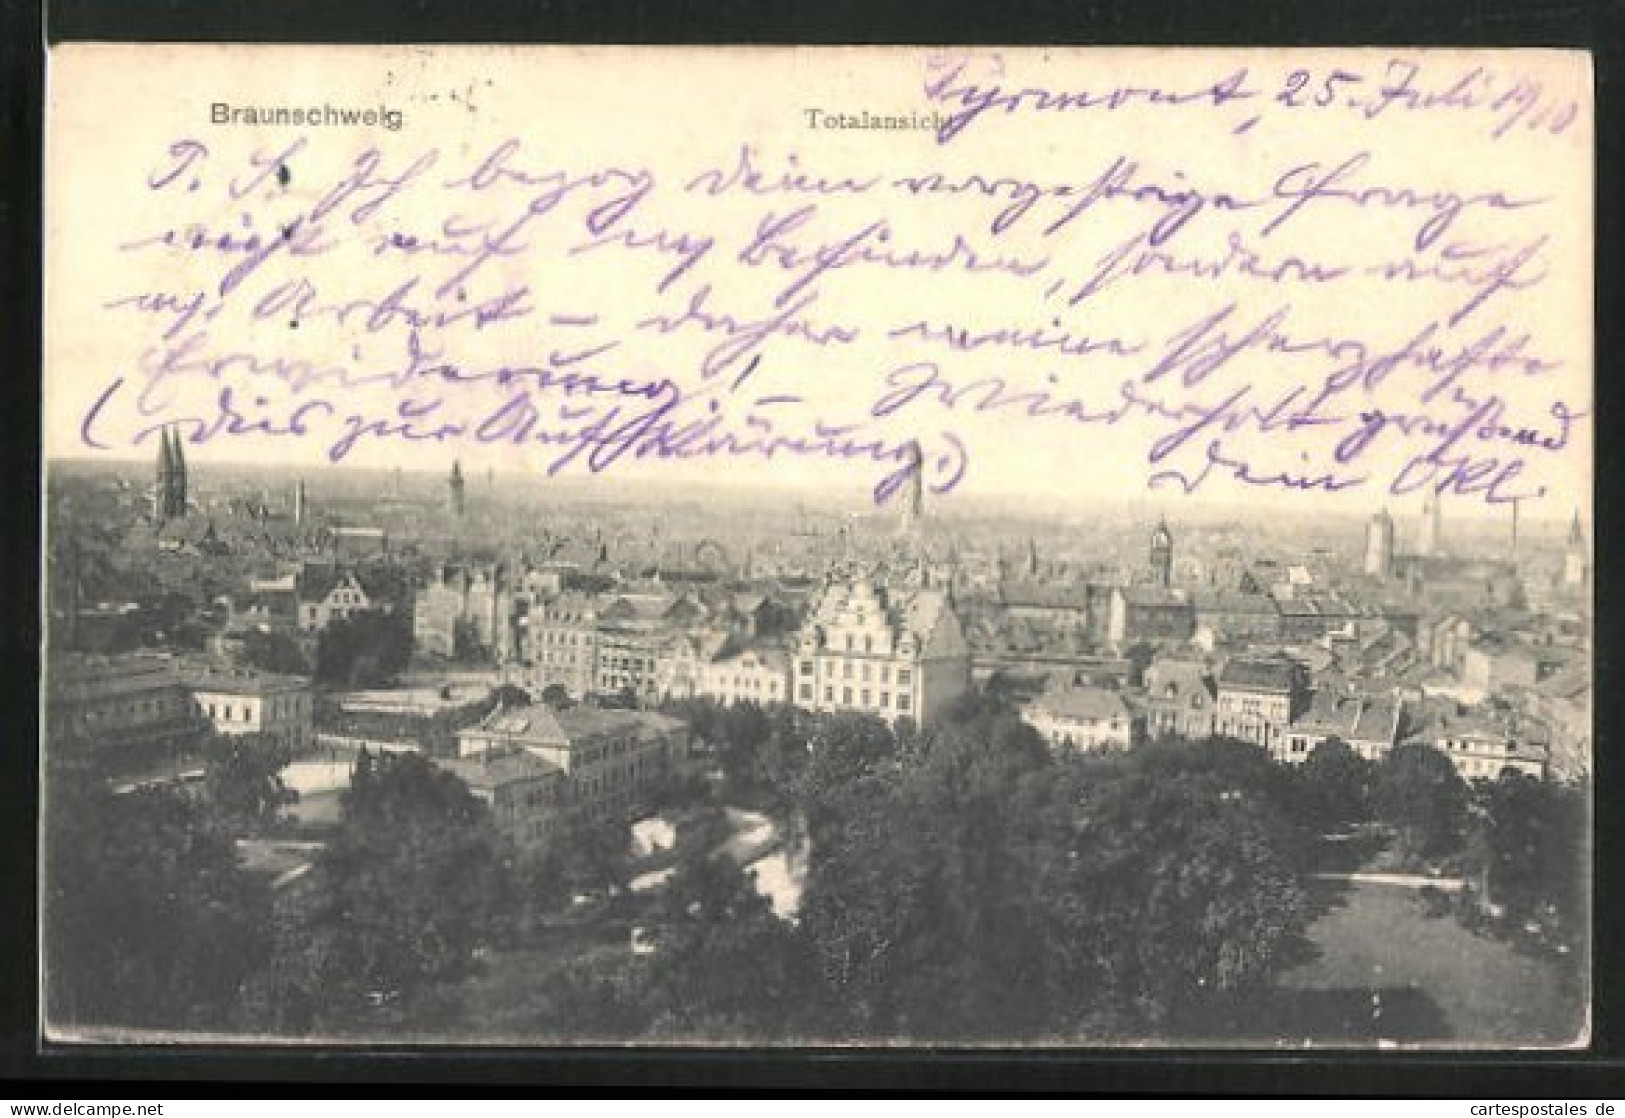 Braunschweig
Totalansicht
Pyrmont, 25. Juli 1910
P. S. Ich bezog Deine vorgestrige Frage
nicht auf m. Befinden, sondern auf
m. Arbeit – daher meine scherzhafte
Erwiderung! – Wiederholt grüßend
(Dies zur Aufklärung.)
Dein Okl.
cartespostales de
www.cartespostales.de